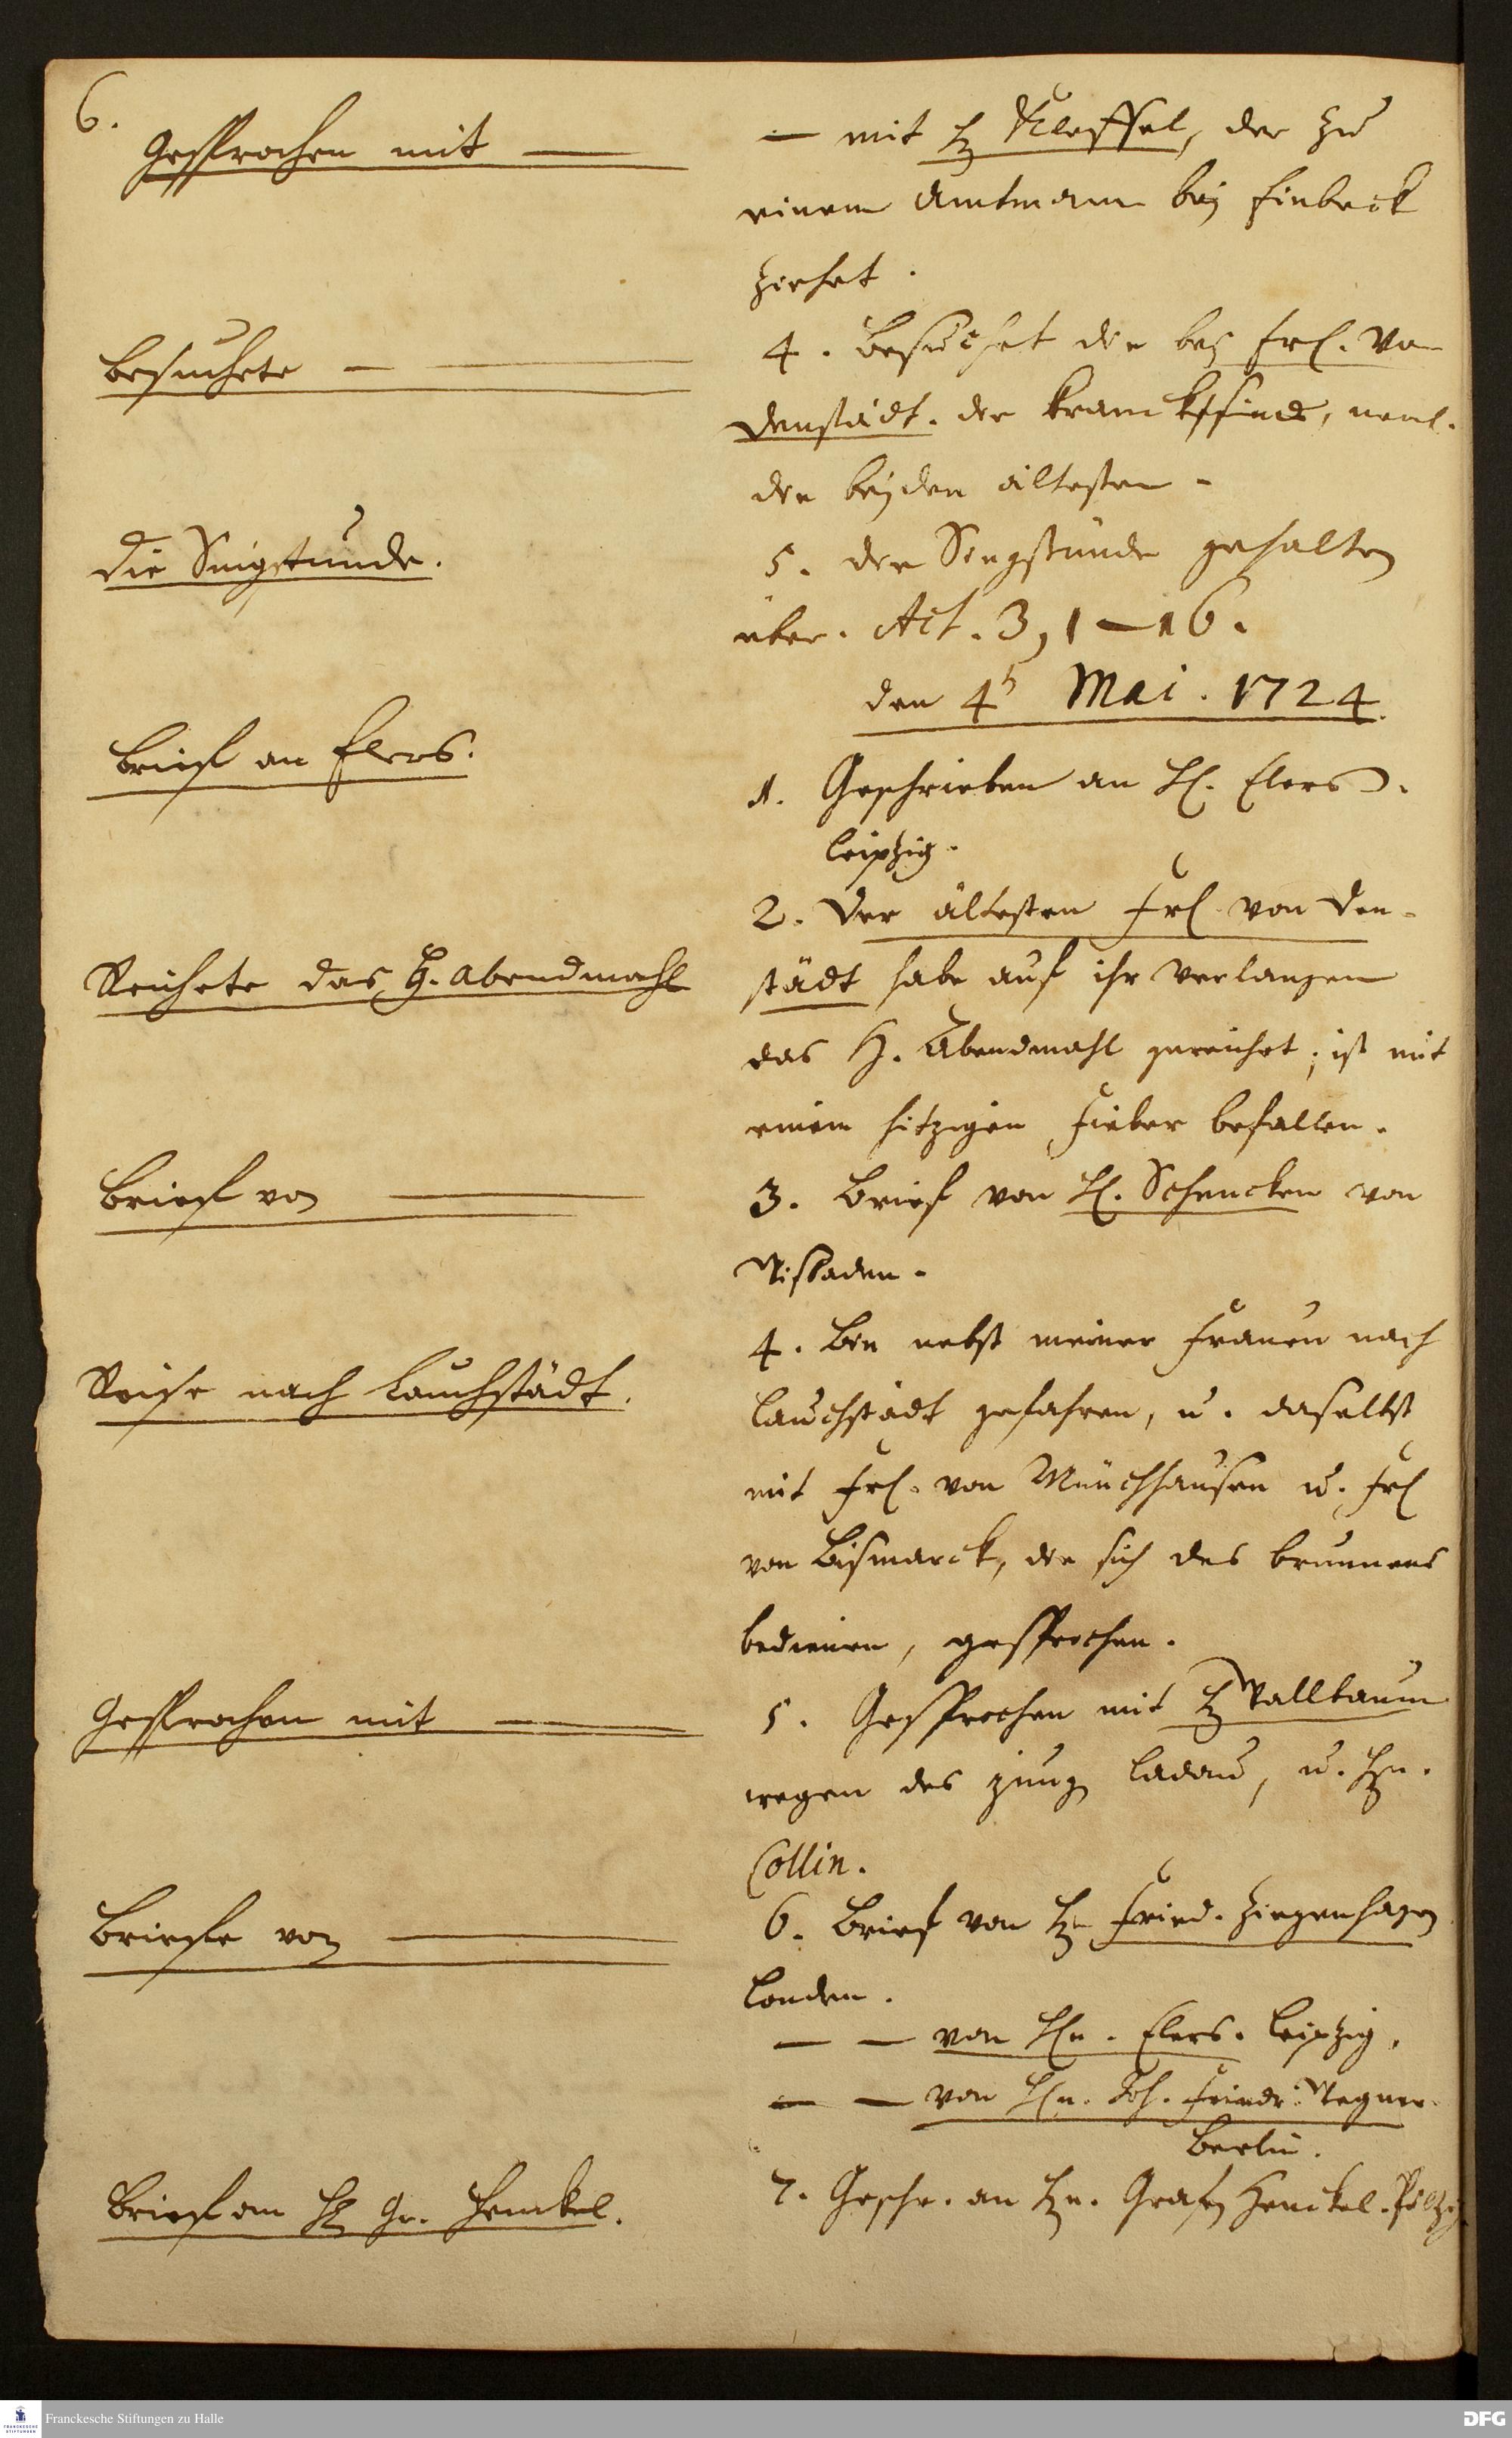 6.
Gesprochen mit —
— mit H. Kleffel, der zu
einem Amtmann bey Einbeck
ziehet.
Besuchte —
4. Besuchet die bey Frl. von
Denstädt. die kranck sind, neml.
die beyden ältesten.
Die Singstunde.
5. die Singstunde gehalten
über. Act. 3, 1 — 16.
den 4t Mai. 1724.
Brief an Elers.
1. Geschrieben an H. Elers.
Leipzig.
2. Der ältesten Frl. von Den-
Reichete das H. Abendmahl
städt habe auf ihr Verlangen
das H. Abendmahl gereichet; ist mit
einem hitzigen Fieber befallen.
Brief von —
3. Brief von H. Schencken von
4. Bin nebst meiner Frauen nach
Reise nach Lauchstädt.
Lauchstädt gefahren, u. daselbst
mit Frl. von Münchhausen u. Frl.
von Bismarck, die sich des brunnens
bedienen, gesprochen.
Gesprochen mit —
5. Gesprochen mit H. Wallbaum
wegen des jung Ladau, u. Hn.
Collin.
6. Brief von Hn. Fried. Ziegenhagen
Briefe von —
Londen.
— — von Hn. Elers. Leipzig.
— — von Hn. Joh. Friedr. Wegner.
Berlin.
Brief an H. Gr. Henckel.
7. Geschr. an Hn. Grafen Henckel. Pölzig.
Franckesche Stiftungen zu Halle
DFG